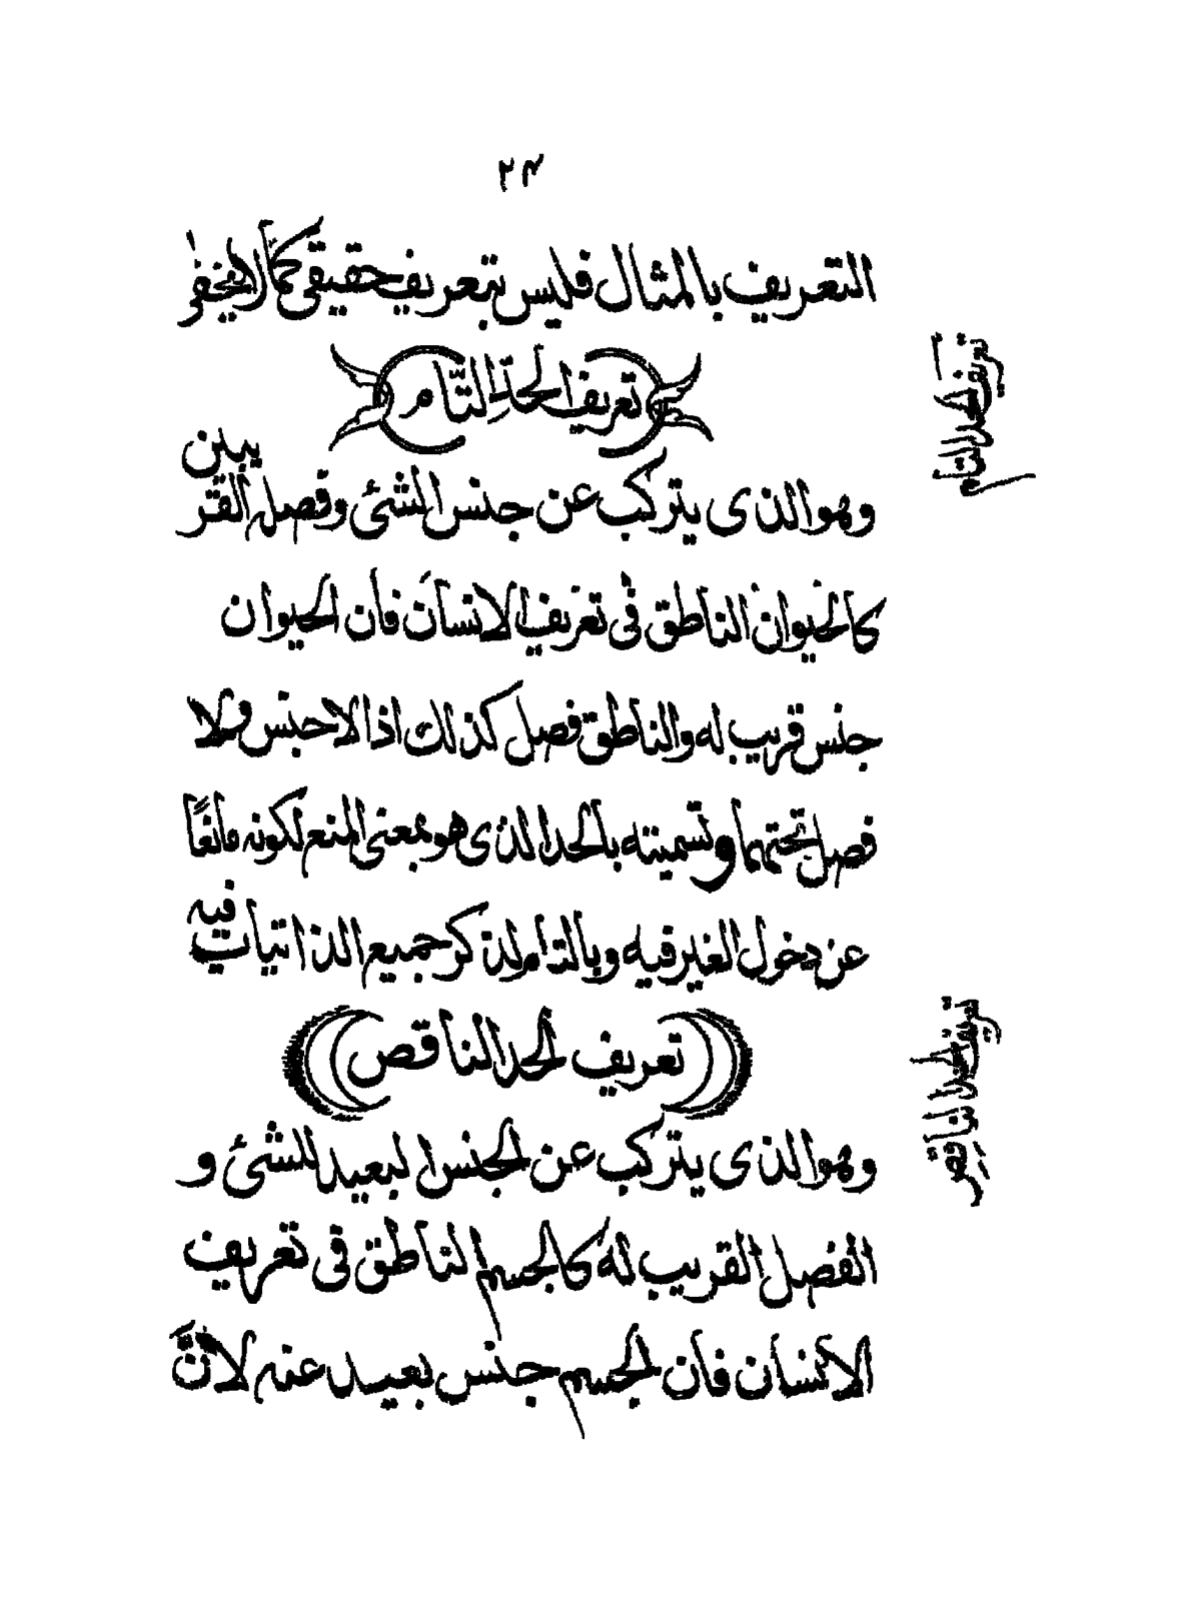 ٢٣
التعريف بالمثال فليس بتعريف حقيقي كما لا يخفى
تعريف الحدِّ التّام
تعريف الحد التام
وهو الذى يتركب عن جنس الشئ وفصله القريبين
كالحيوان الناطق فى تعريف الانسان فان الحيوان
جنس قريب له والناطق فصل كذلك اذا لا جنس ولا
فصل تحتهما وتسميته بالحد الذى هو بمعنى المنع لكونه مانعًا
عن دخول الغير فيه وبالتام لذكر جميع الذاتيات فيه
تعريف الحد الناقص
تعريف الحد الناقص
وهو الذى يتركب عن الجنس البعيد للشئ و
الفصل القريب له كالجسم الناطق فى تعريف
الانسان فان الجسم جنس بعيد عنه لانَّ